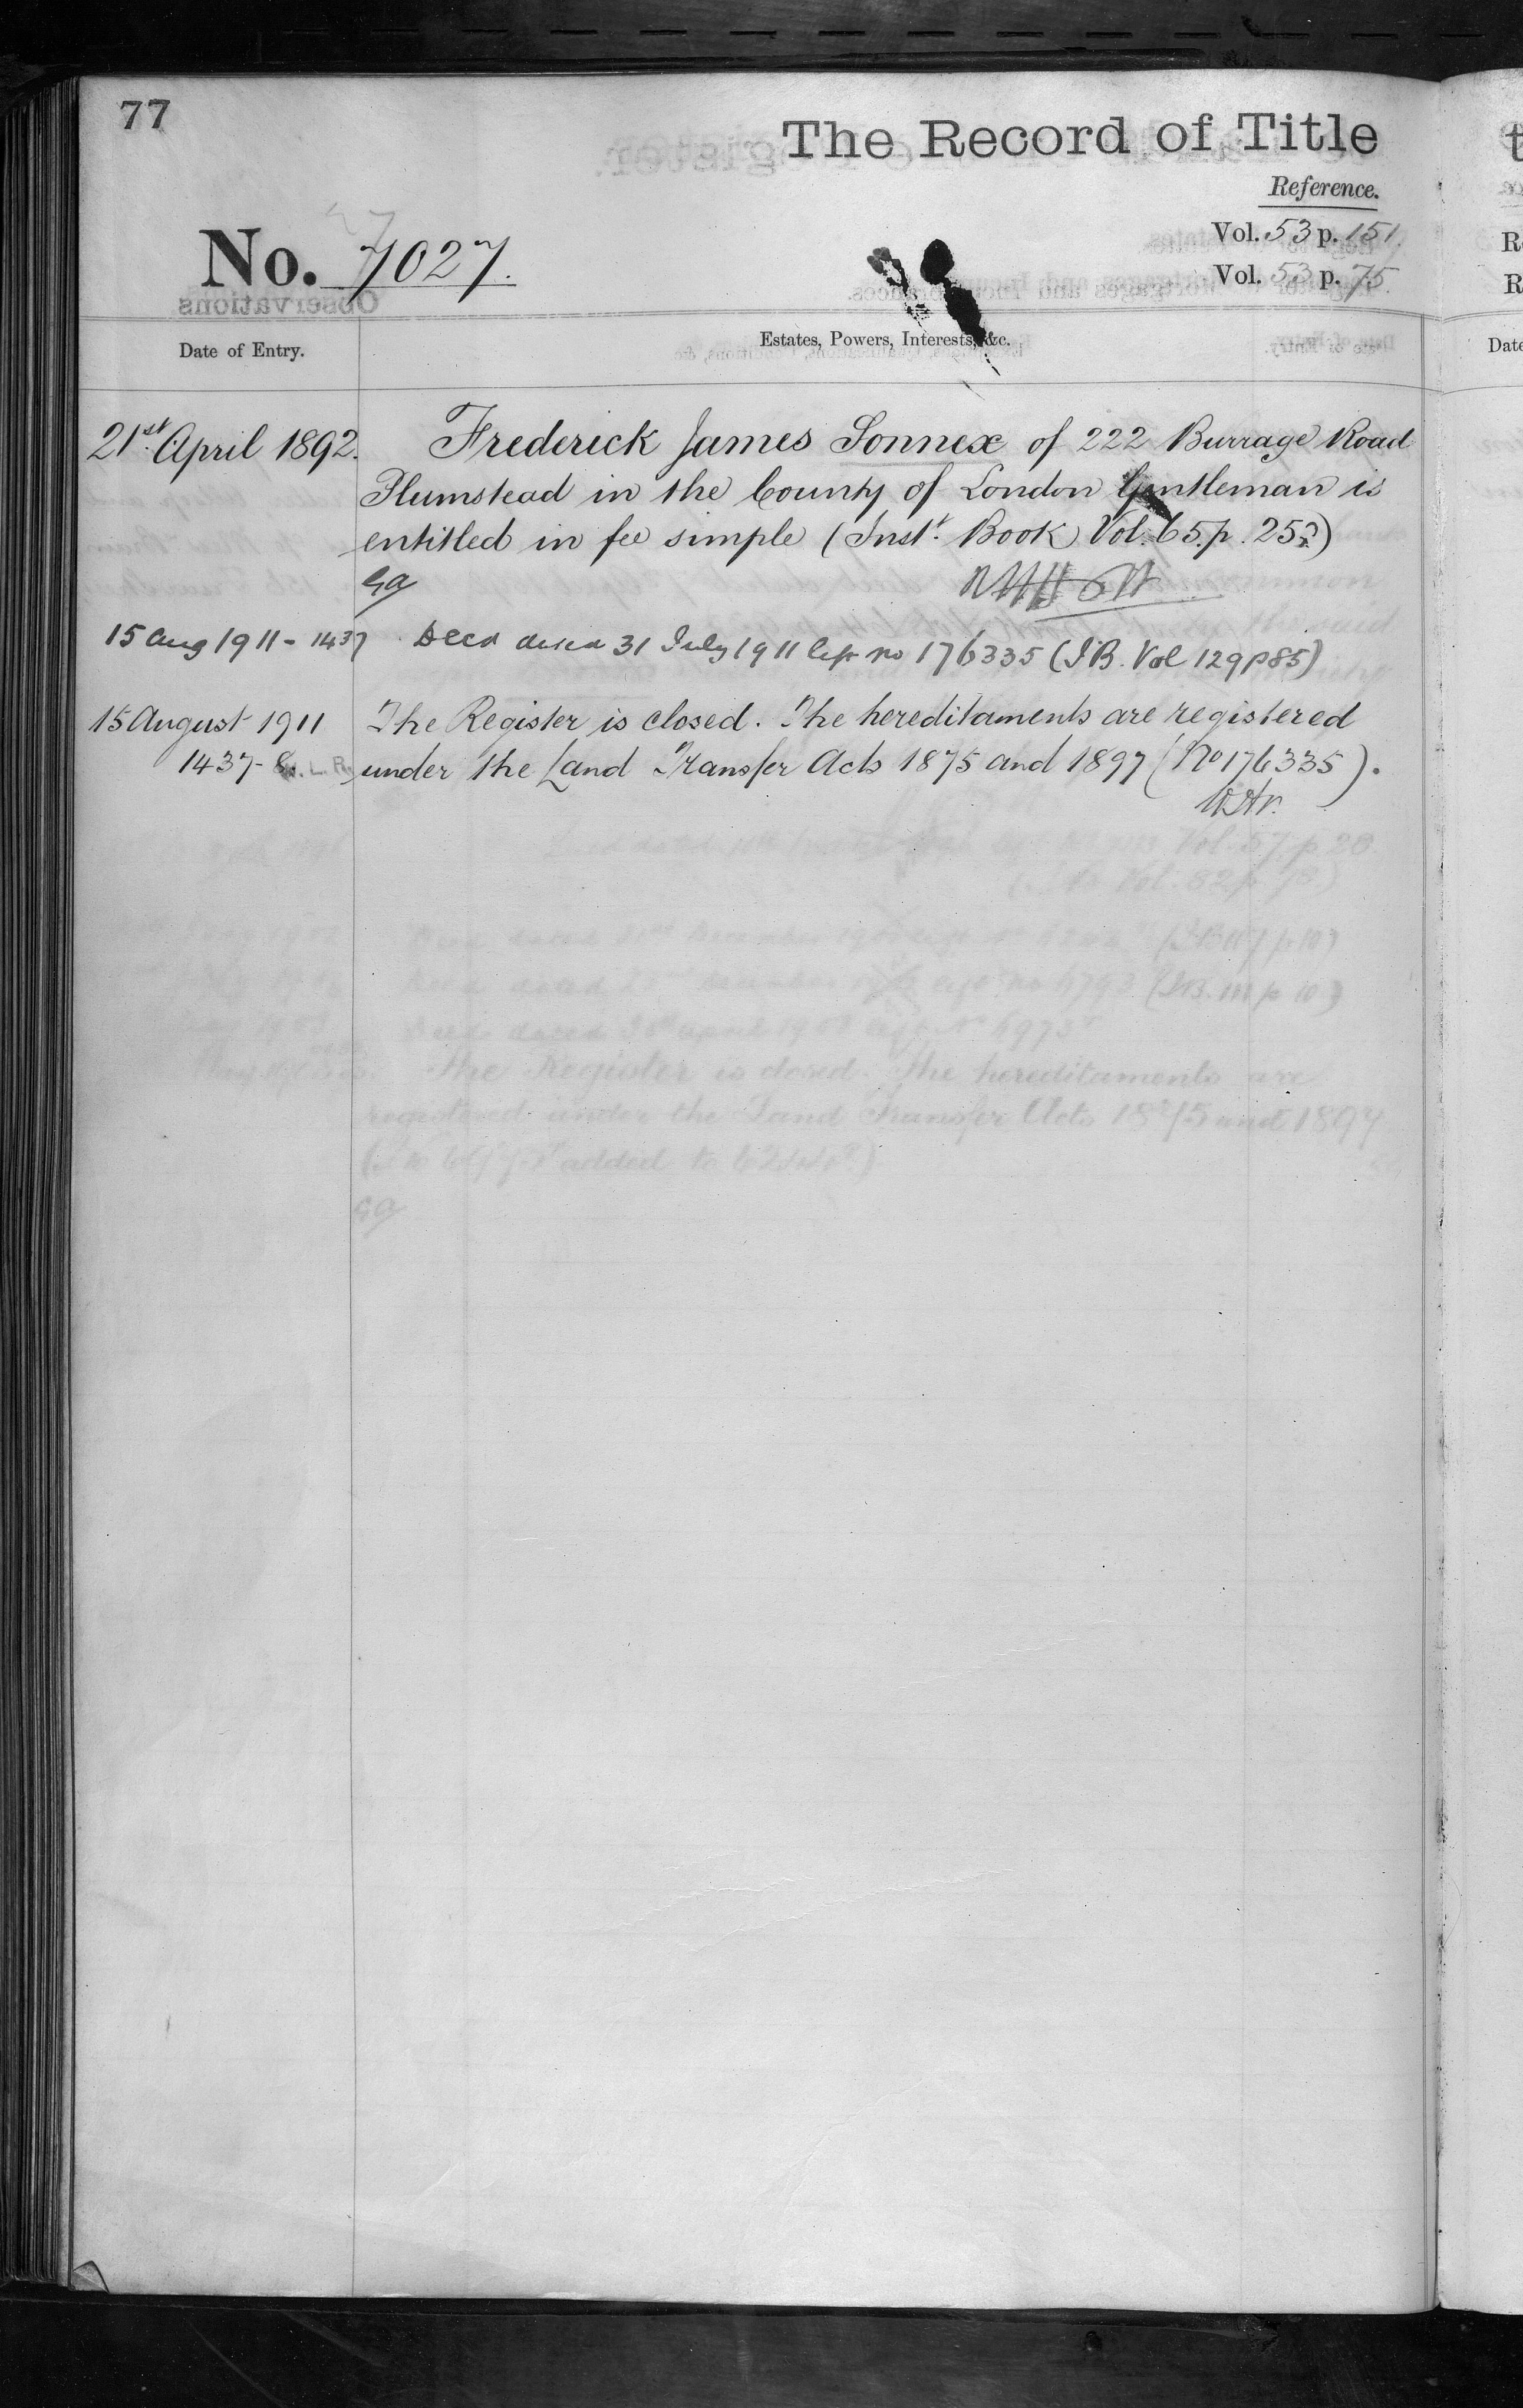 77
The Record of Title
Reference.
No. 7027.
Vol. 53 p. 151.
Vol. 53 p. 75.
Date of Entry.
Estates, Powers, Interests, &c.
21st. April 1892.
Frederick James Sonnex of 222 Burrage Road
Plumstead in the County of London Gentleman is
entitled in fee simple (Inst.t Book Vol. 65. p. 252)
15 Aug 1911 - 1437
Deed dated 31 July 1911 no 176335 (I.B. Vol 129 p 85)
15 August 1911
The Register is closed. The hereditaments are registered
1437-8.
under the Land Transfer Acts 1875 and 1897 (No 176335).